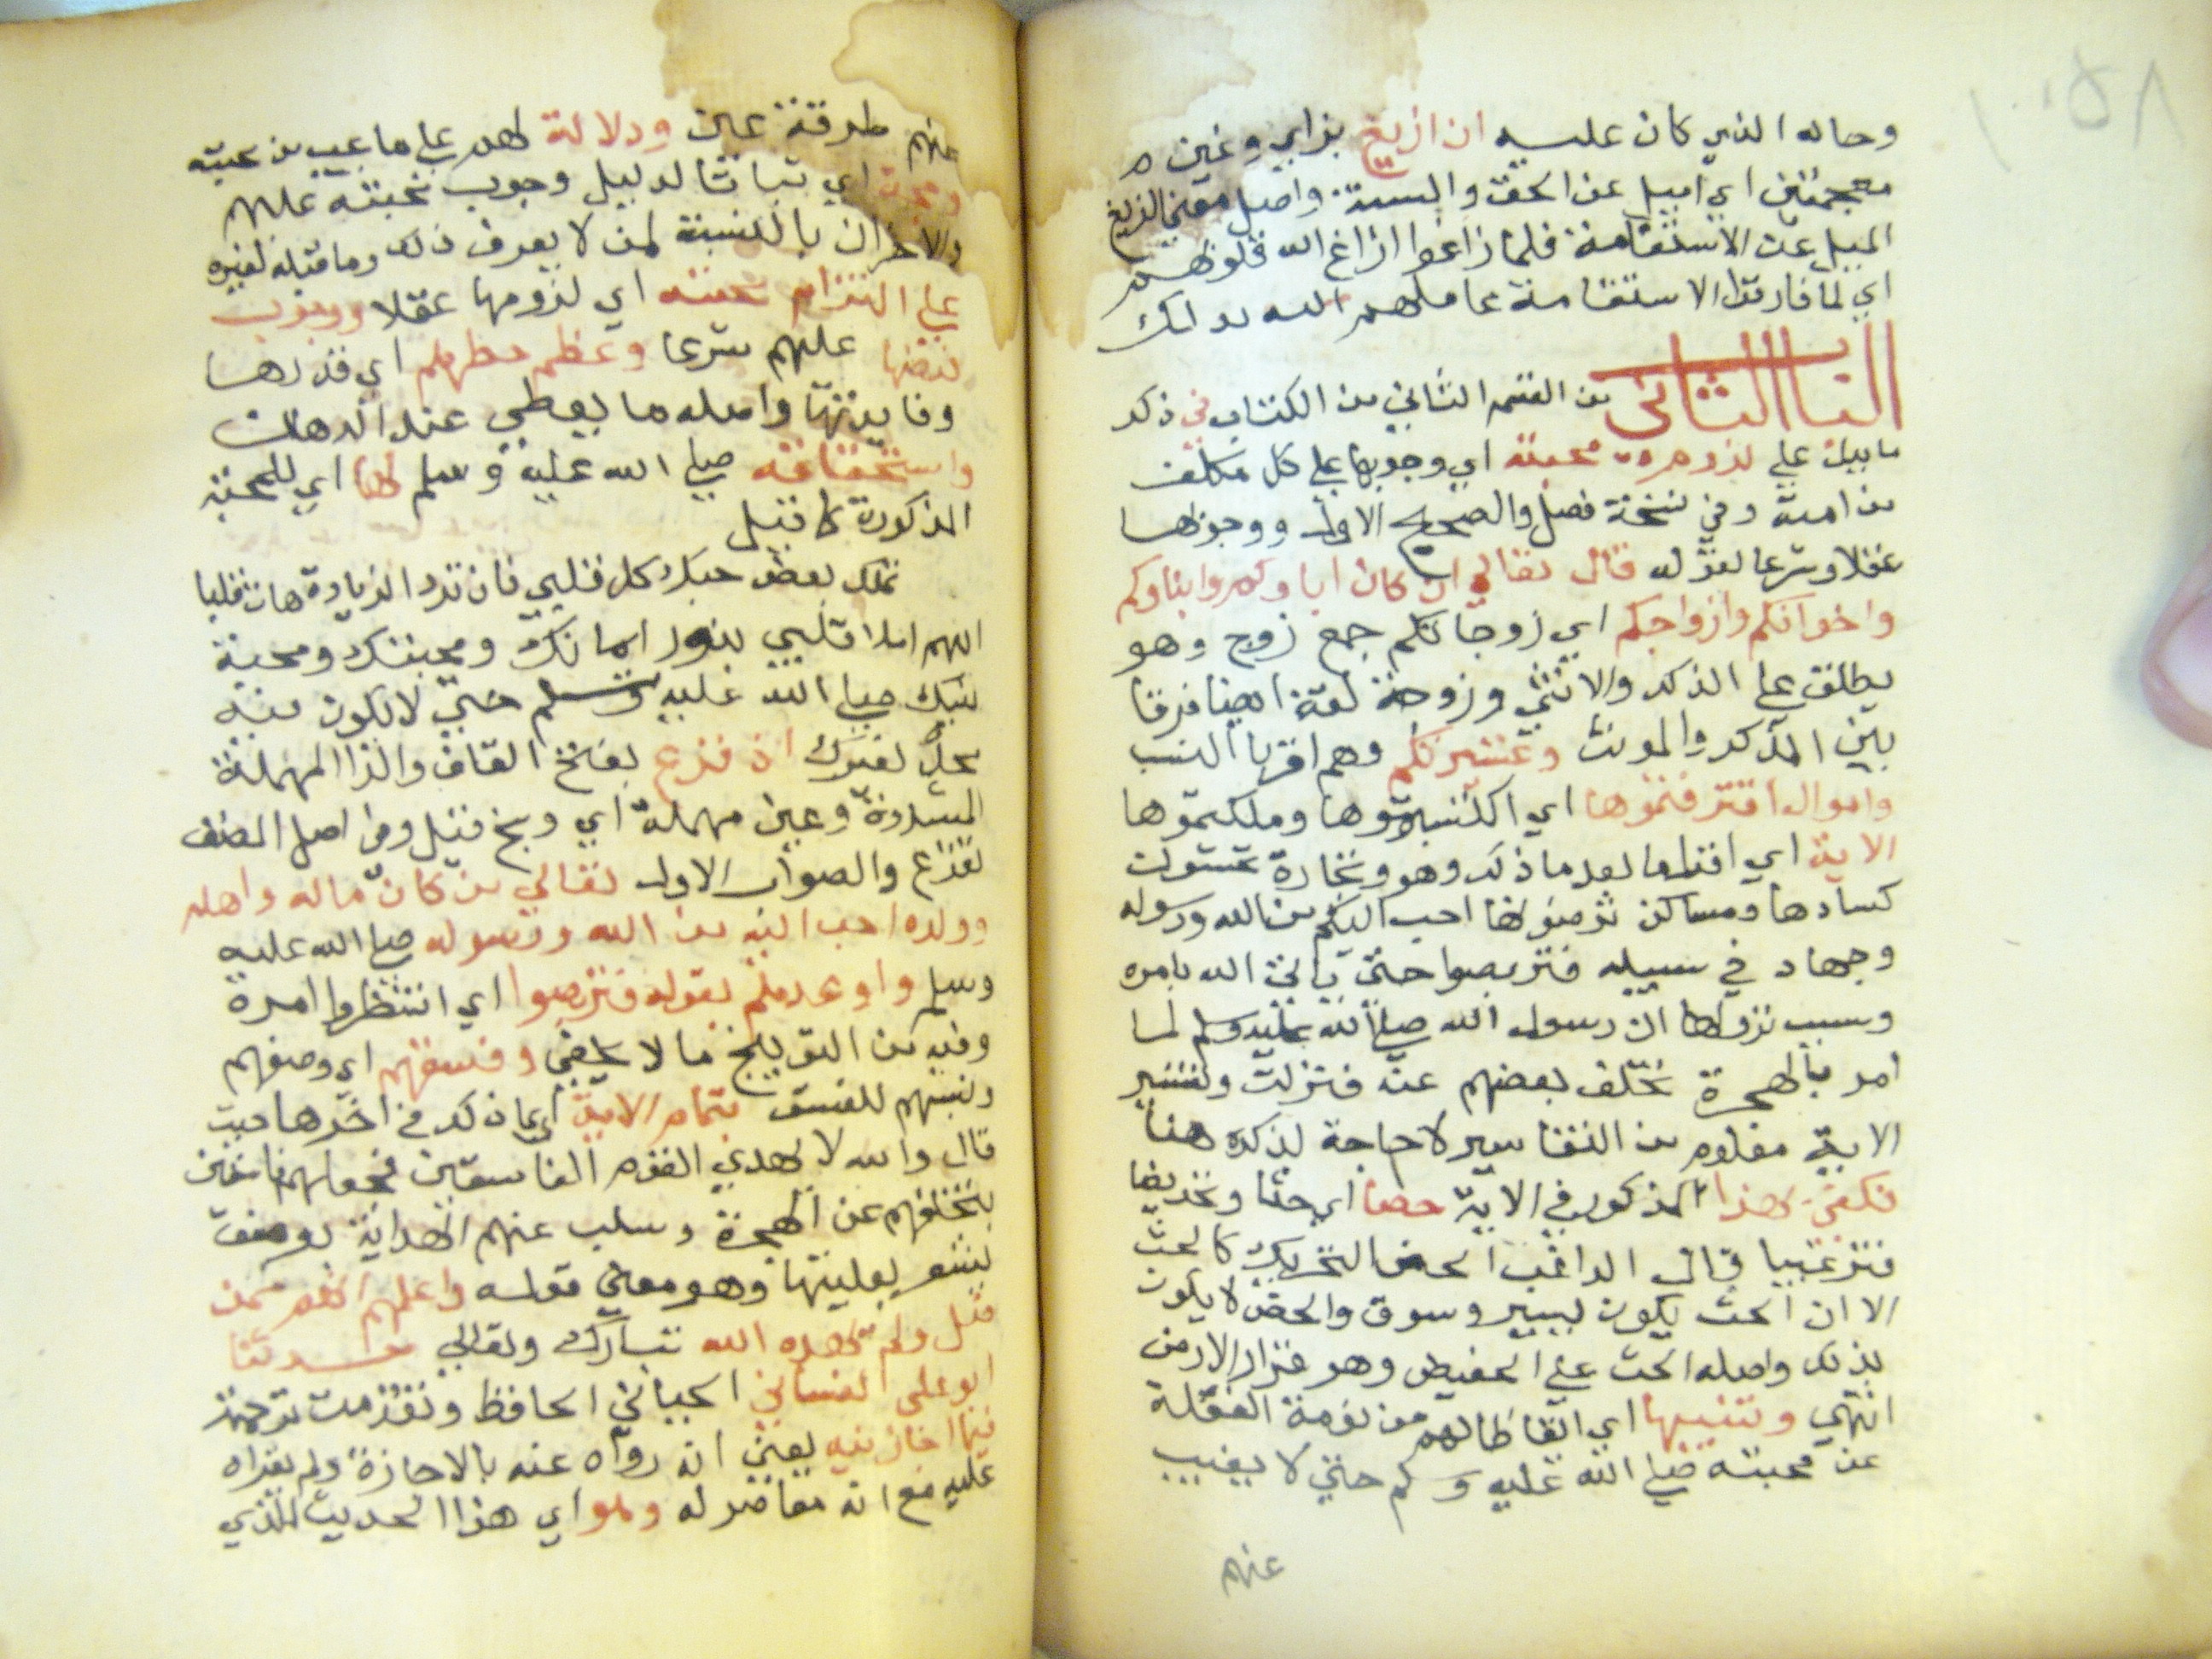 ١٠٥٨
وحاله الذي كان عليه ان ازيغ بزاي وغين م
معجمتين اي اميل عن الحق والسنة واصل معنى الزيغ
الميل عن الاستقامة فلما زاغوا ازاغ الله قلوبهم
اي لما فارقوا الاستقامة عاملهم الله بذلك
الباب الثاني من القسم الثاني من الكتاب في ذكر
ما يبك على لزوم محبته اي وجوبها على كل مكلف
من امته وفي نسخة فصل والصحيح الاول ووجوبها
عقلا وشرعا لقوله قال تعالى ان كان اباوكم وابناوكم
واخوانكم وازواجكم اي زوجاتكم جمع زوج وهو
يطلق على الذكر والانثى وزوجة لغة ايضا فرقا
بين المذكر والمونث وعشيرتكم وهم اقربا النسب
واموال اقترفتموها اي اكتسبتموها وملكتموها
الاية اي اقرا ما بعد ما ذكر وهو وتجارة تخشون
كسادها ومساكن ترضونها احب اليكم من الله ورسوله
وجهاد في سبيله فتربصوا حتى ياتى الله بامره
وسبب نزولها ان رسول الله صلى الله عليه وسلم لما
امر بالهجرة تخلف بعضهم عنه فنزلت وتفسير
الاية معلوم من التفاسير لا حاجة لذكره هنا
فكفى بهذا المذكور في الاية حضا اي حثا وتحريضا
فترغيبا قال الراغب الحض التحريك كالحث
الا ان الحث يكون بسير وسوق والحض لا يكون
بذلك واصله الحث على الحضيض وهو قرار الارض
انتهى وتنبيها اي ايقاظا لهم من نومة الغفلة
عن محبته صلى الله عليه وسلم حتى لا يغيب
عنهم
عنهم طرفة عين ودلالة لهم على ما غيب من محبته
وحجة اي تباتا لدليل وجوب محبته عليهم
والاخران بالنسبة لمن لا يعرف ذلك وما قبله لغيره
على التزام محبته اي لزومها عقلا ووجوب
فرضها عليهم شرعا وعظم خطرهم اي قدرها
وفايدتها واصله ما يعطي عند الرهان
واستحقاقه صلى الله عليه وسلم لها اي للمحبة
المذكورة كما قيل
تملك بعض حبك كل قلبي فان ترد الزيادة هات قلبا
اللهم املا قلبي بنور ايمانك ومحبتك ومحبة
نبيك صلى الله عليه وسلم حتى لا يكون فيه
محل لغيرك اذ قرع بفتح القاف والرا المهملة
المشددة وعين مهملة اي وبخ قيل وفي اصل المصنف
تقرع والصواب الاول تعالى من كان ماله واهله
وولده احب اليه من الله ورسوله صلى الله عليه
وسلم واوعدهم بقوله فتربصوا اي انتظروا امره
وفيه من التوبيخ ما لا يخفى وفسقهم اي وصفهم
ونسبهم للفسق بتمام الاية اي بما ذكر في اخرها حيث
قال والله لا يهدي القوم الفاسقين فجعلهم فاسقين
بتخلفهم عن الهجرة وسلب عنهم الهداية بوصف
يشعر بعليتها وهو معنى قوله واعلمهم انهم ممن
ضل ولم يهده الله تبارك وتعالى حدثنا
ابو على الغساني الجياني الحافظ وتقدمت ترجمته
فيما اجازنيه يعني انه رواه عنه بالاجازة ولم يقراه
عليه مع انه معاصر له وهو اي هذا الحديث الذي